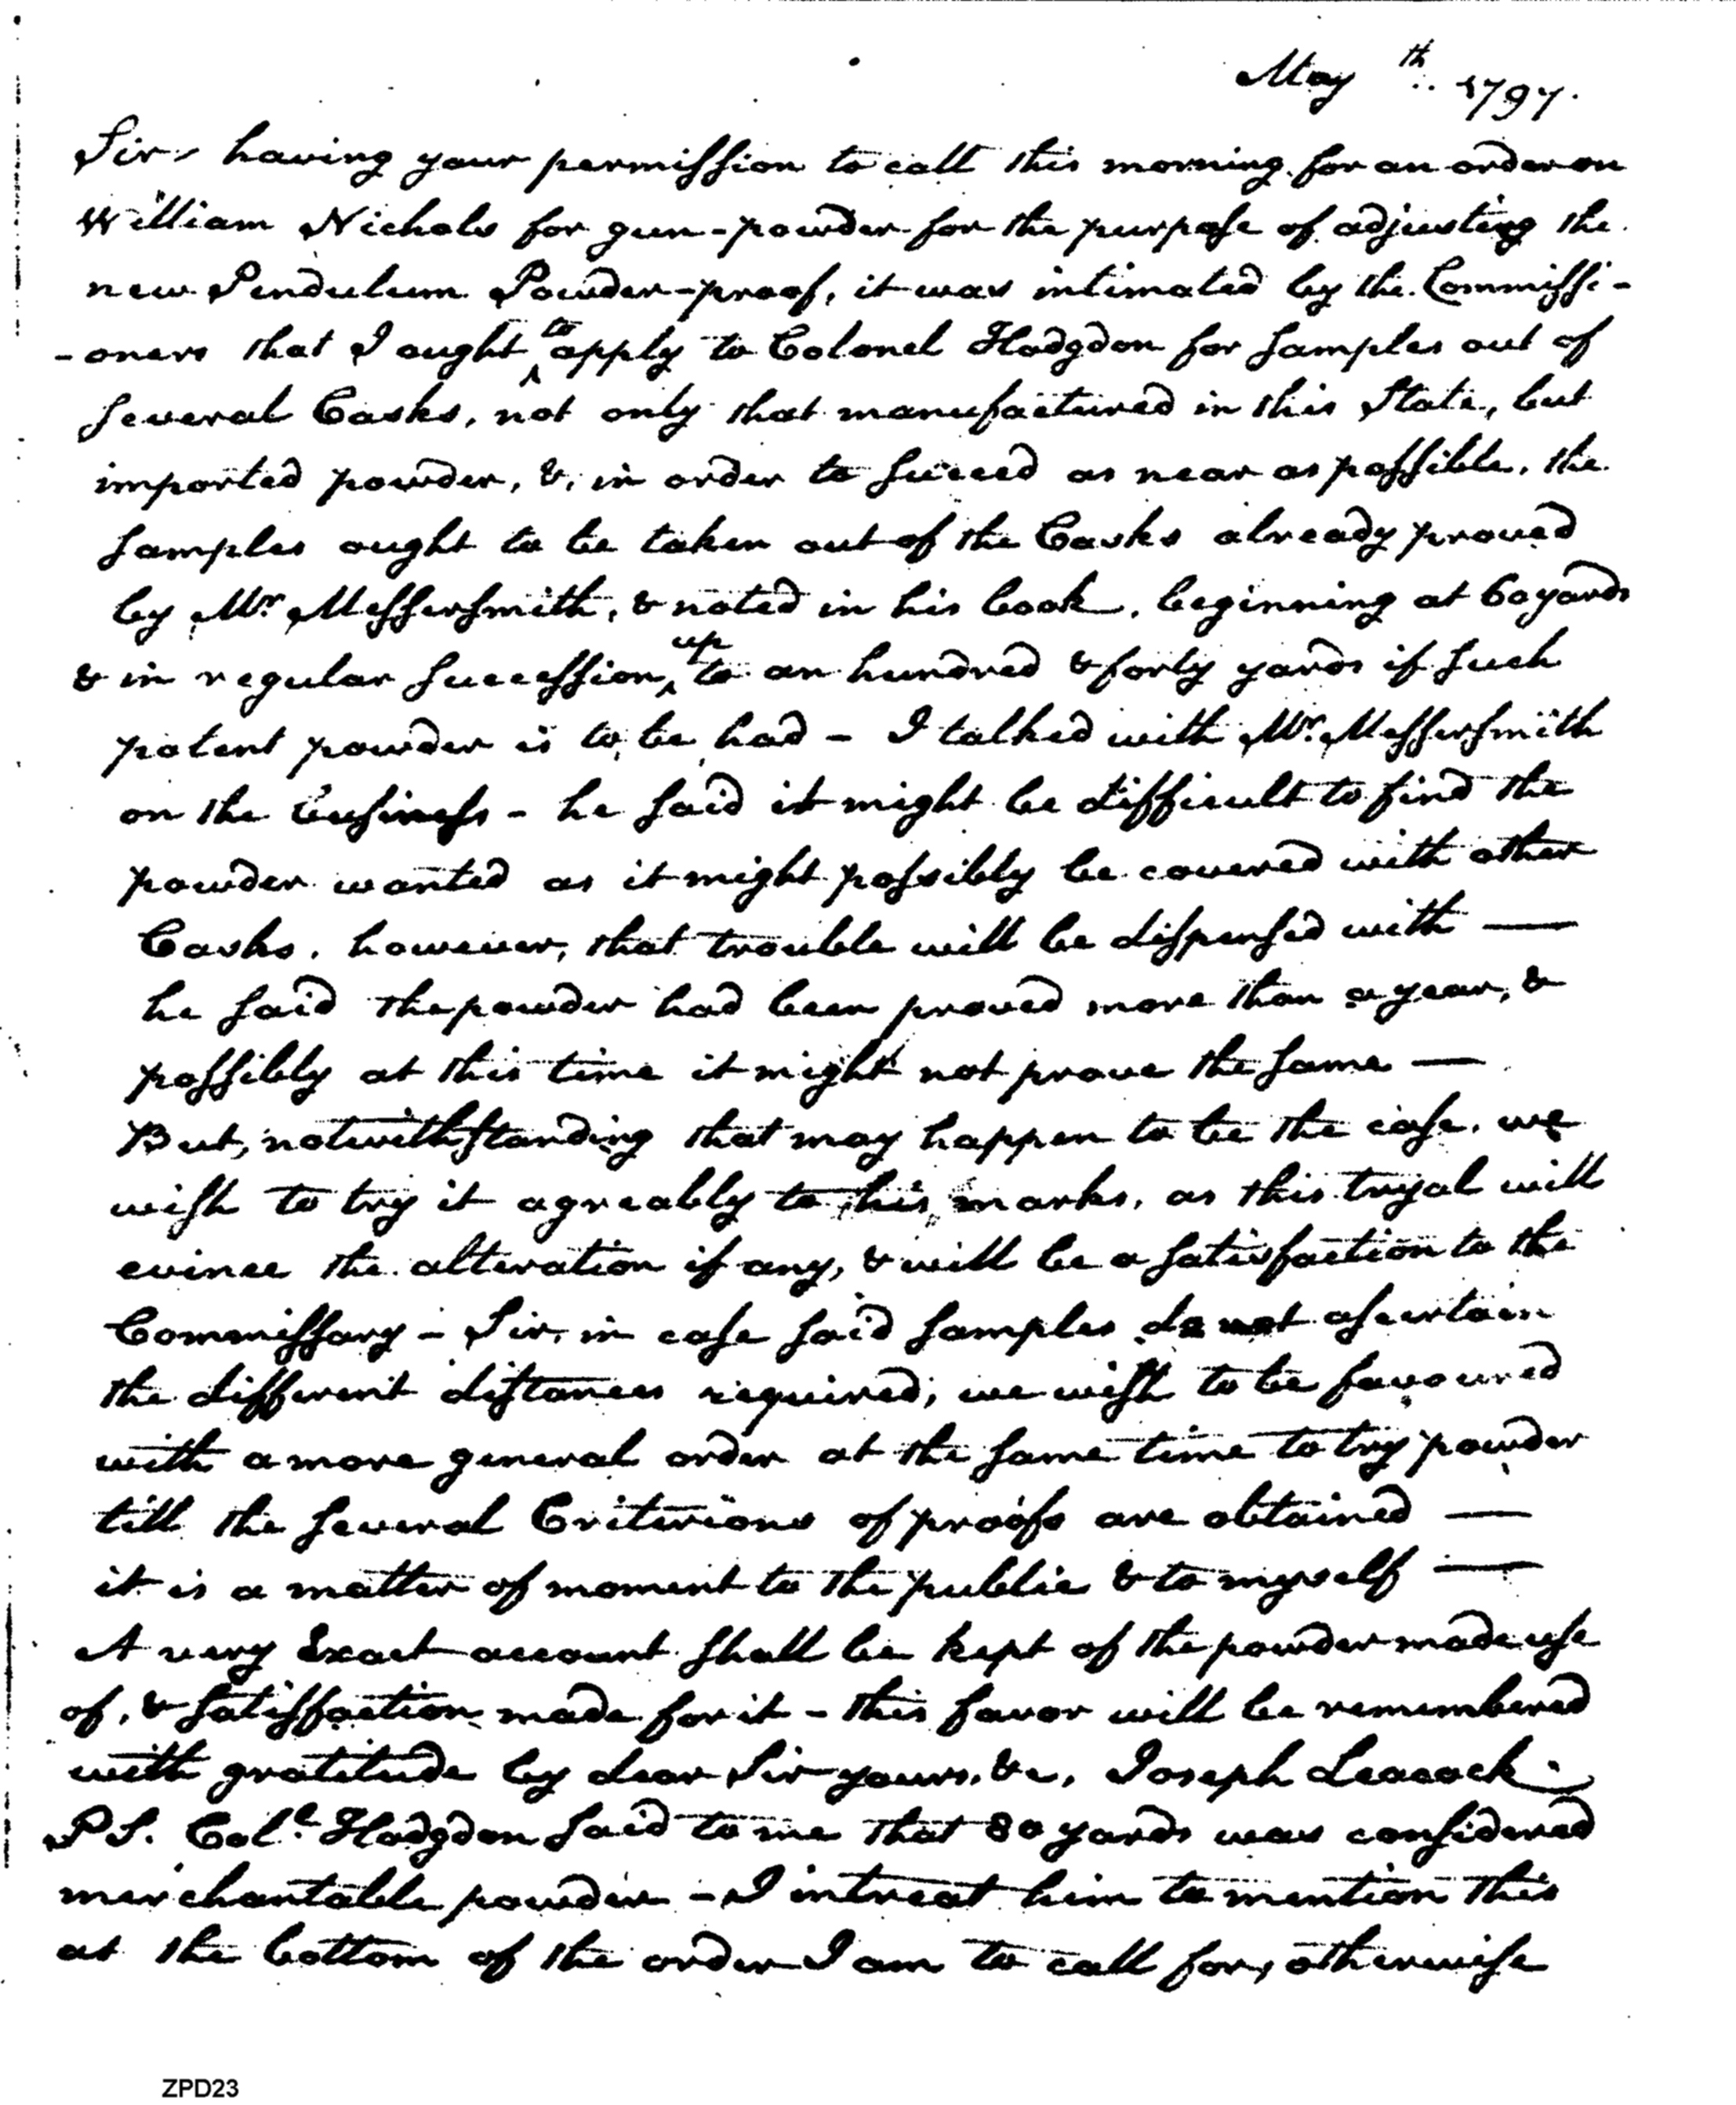 May th 1797.
Sir, having your permission to call this morning for an order on
William Nichols for gun-powder for the purpose of adjusting the
new Pendulum Powder-proof, it was intimated by the Commissi-
-oners that I ought to apply to Colonel Hodgdon for samples out of
several Casks, not only that manufactured in this State, but
imported powder, &, in order to succeed as near as possible, the
samples ought to be taken out of the Casks already proved
by Mr. Messersmith, & noted in his book, beginning at 60 yards
& in regular succession, up to an hundred & forty yards if such
potent powder is to be had - I talked with Mr. Messersmith
on the business - he said it might be difficult to find the
powder wanted as it might possibly be covered with other
Casks, however, that trouble will be dispensed with —
he said the powder had been proved more than a year, &
possibly at this time it might not prove the same —
But, notwithstanding that may happen to be the case, we
wish to try it agreably to his marks, as this tryal will
evince the alteration if any, & will be a satisfaction to the
Commissary - Sir, in case said samples do not ascertain
the different distances required, we wish to be favoured
with a more general order at the same time to try powder
till the several Criterions of proofs are obtained —
it is a matter of moment to the public & to myself —
A very Exact account shall be kept of the powder made use
of, & satisfaction made for it - this favor will be remembered
with gratitude by dear Sir yours, &c, Joseph Leacock.
P S. Col.l Hodgdon said to me that 80 yards was considered
merchantable powder - I intreat him to mention this
at the bottom of the order I am to call for, otherwise
ZPD23